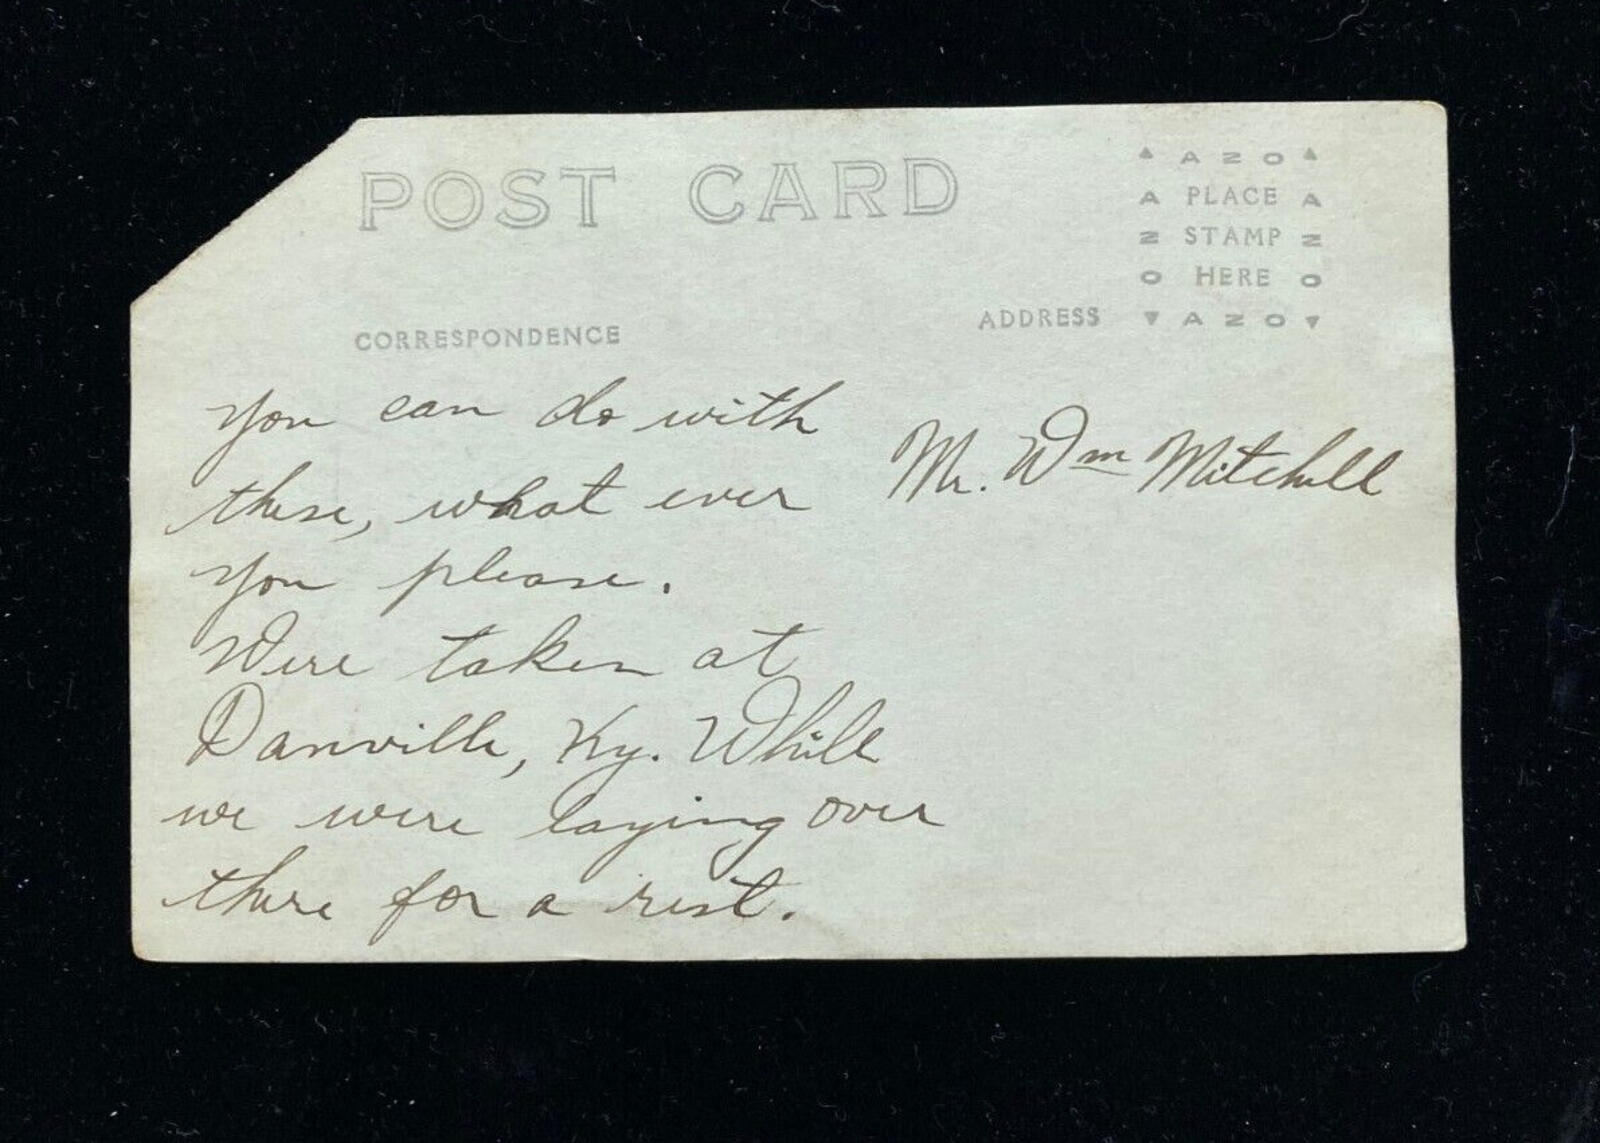 POST CARD
▲ A Z O ▲
A PLACE A
Z STAMP Z
O HERE O
▼ A Z O ▼
CORRESPONDENCE
ADDRESS
You can do with
these, what ever
you please.
Were taken at
Danville, Ky. While
we were laying over
there for a rest.
Mr. Wm Mitchell